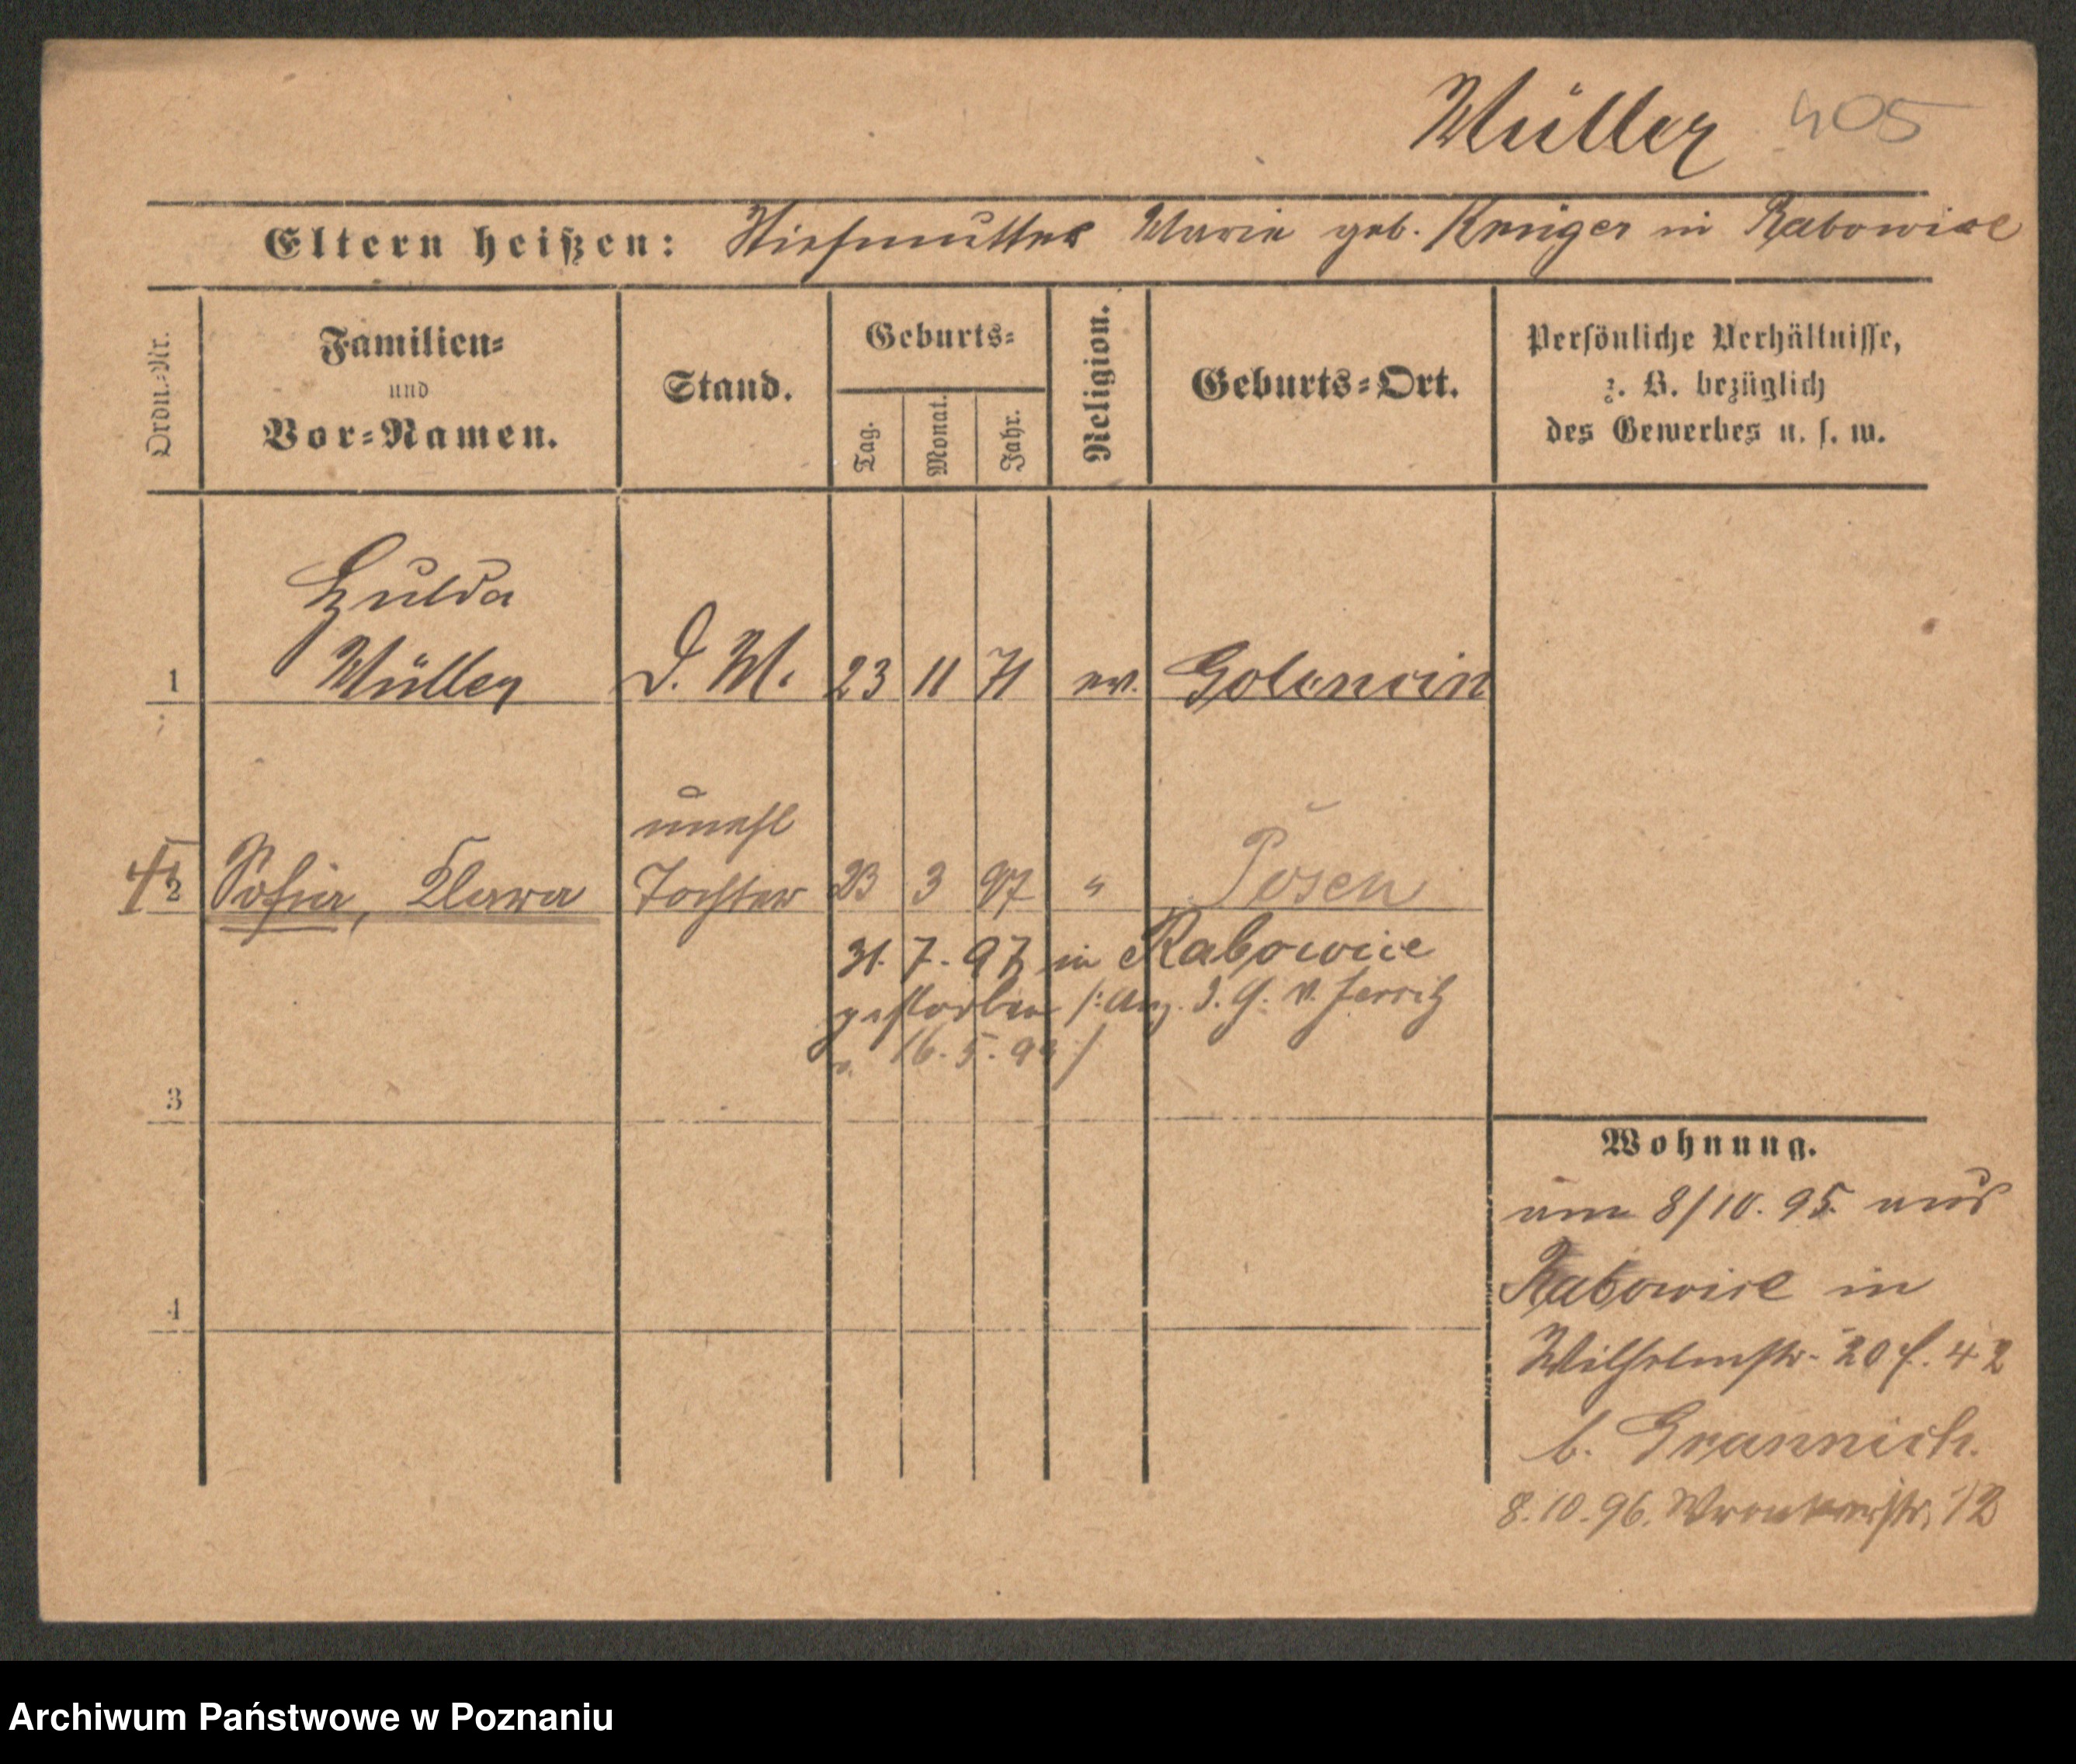 Müller 405
Eltern heißen: Stiefmutter Marie geb. Krüger in Rabowice
Ordn.-Nr.
Familien-
und
Vor-Namen.
Stand.
Geburts-
Tag.
Monat.
Jahr.
Religion.
Geburts-Ort.
Persönliche Verhältnisse,
z. B. bezüglich
des Gewerbes u. s. w.
Hulda
1 Müller D. M. 23 11 71 ev. Golencin
unehl
2 Sofia, Klara Tochter 23 3 97 " Posen
31. 7. 97 in Rabowice
gestorben /: Anz. d. G. V. Jersitz
v. 16. 5. 99 /
3
Wohnung.
am 8/10. 95. aus
4
Rabowice in
Wilhelmstr. 20 f. 42
b. Grannich.
8.10.96. Wronkerstr. 12
Archiwum Państwowe w Poznaniu